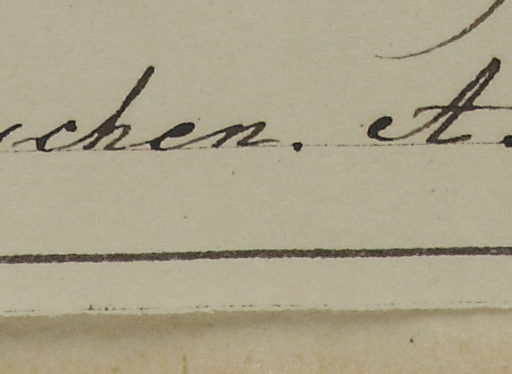 chen. A.